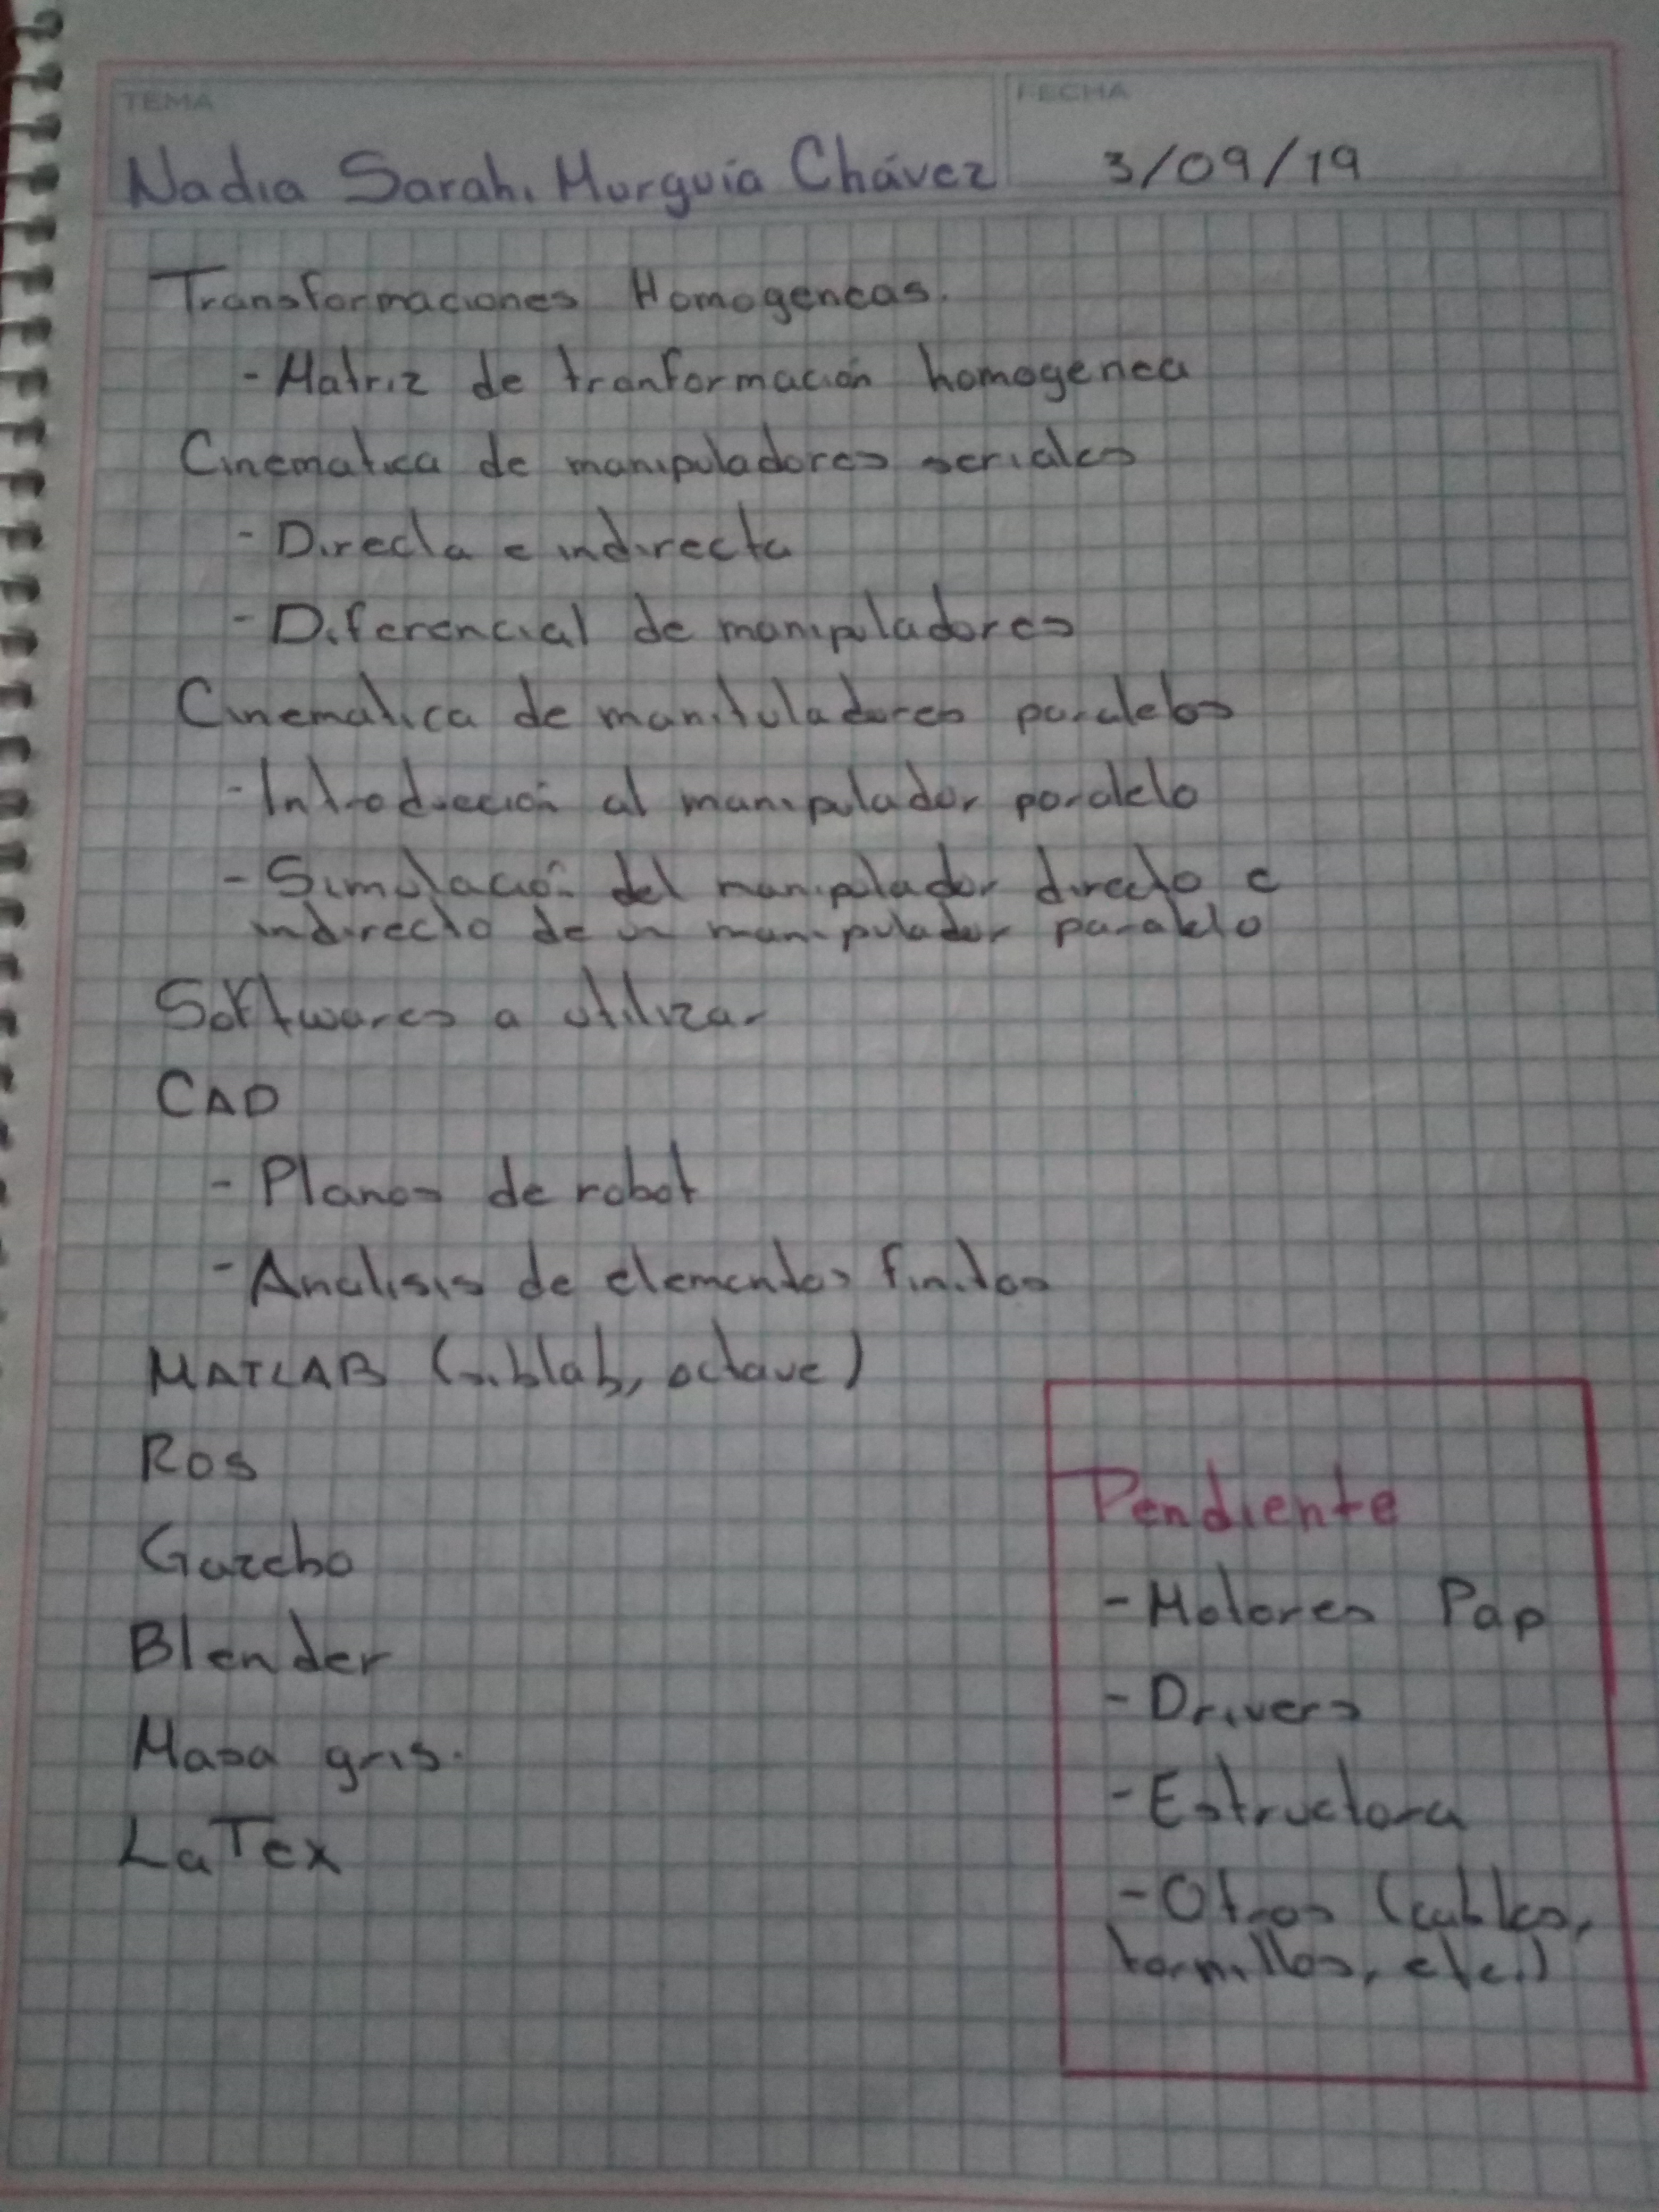 TEMA
FECHA
Nadia Sarah. Murguía Chávez
3/09/19
Transformaciones Homogeneas.
- Matriz de tranformación homogenea
Cinematica de manipuladores seriales
- Directa e indirecta
- Diferencial de manipuladores
Cinematica de manituladores paralelos
- Introducción al manipulador paralelo
- Simulación del manipulador directo e
indirecto de un manipulador paralelo
Softwares a utilizar
CAD
- Planos de robot
- Analisis de elementos finitos
MATLAB (octave)
Ros
Gazebo
Blender
Masa gris.
LaTex
Pendiente
- Motores Pap
- Drivers
- Estructura
- Otros (cables,
tornillos, etc.)